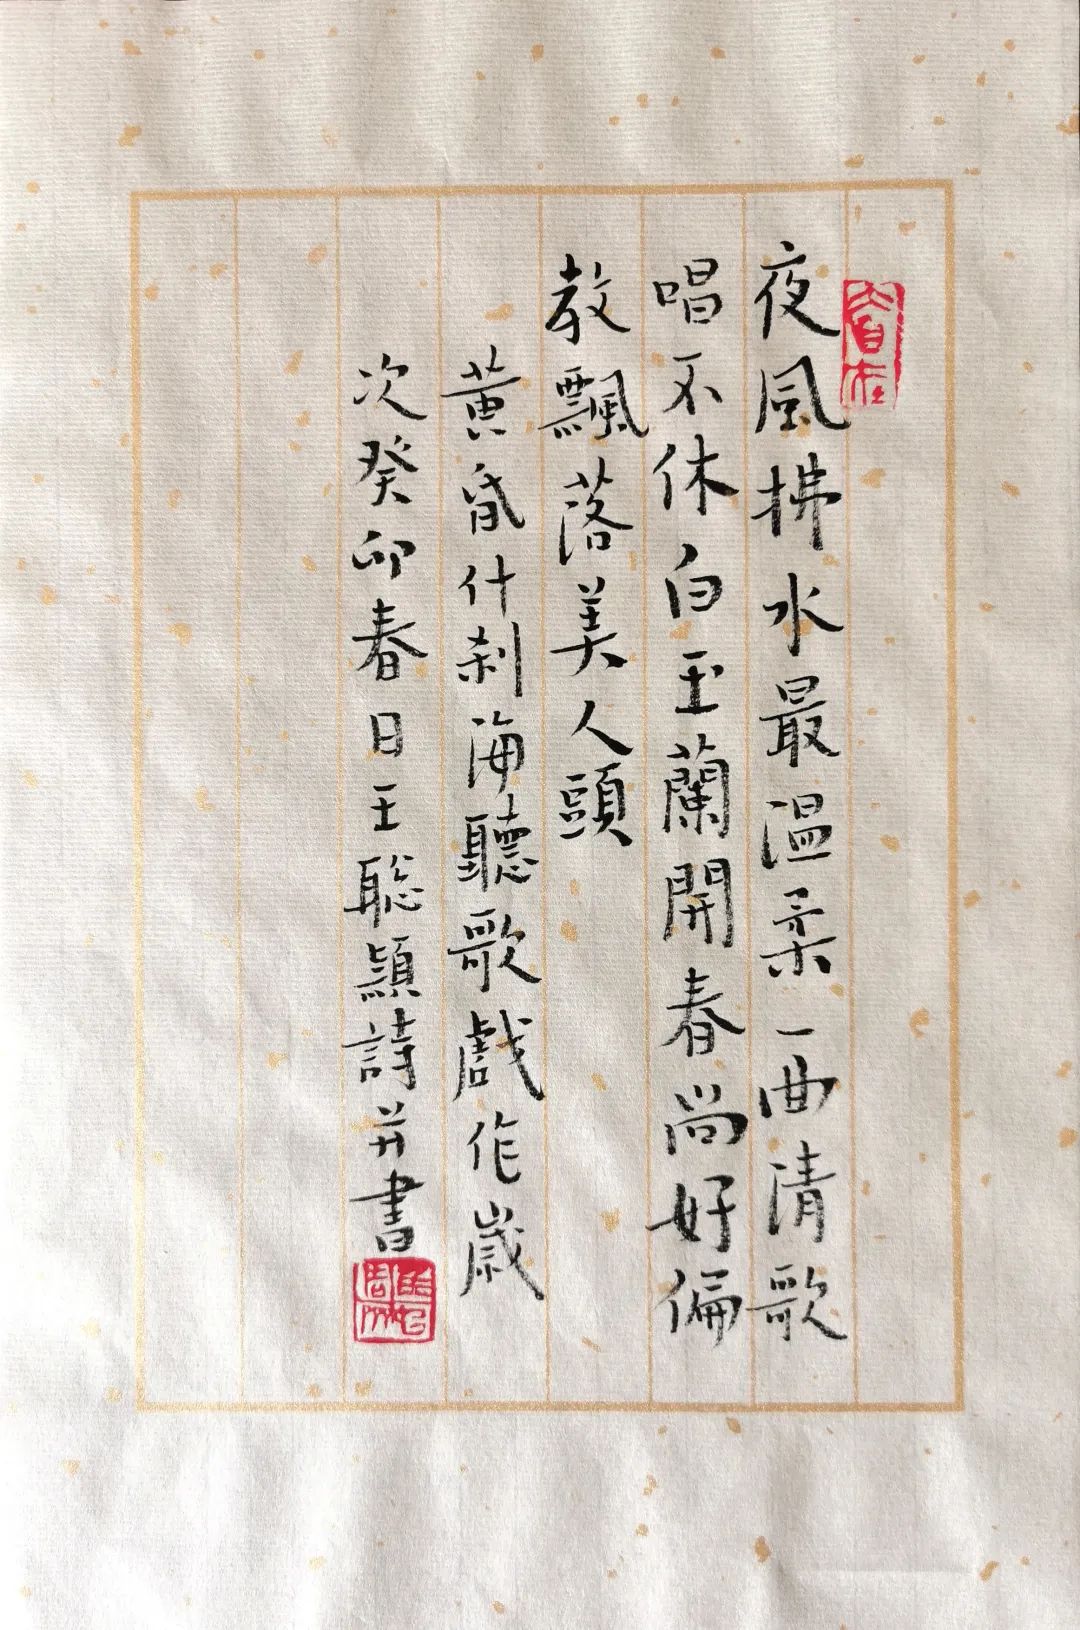 夜風拂水最溫柔一曲清歌
唱不休白玉蘭開春尚好偏
教飄落美人頭
黄昏什刹海聽歌戲作歲
次癸卯春日王聡穎詩并書